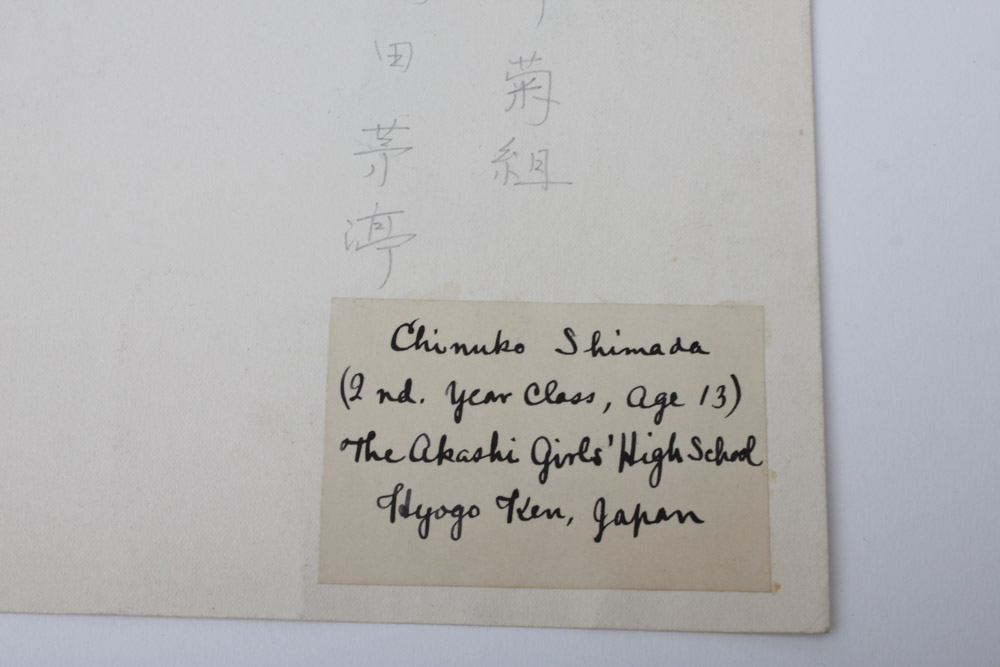 菊組
田茅渟
Chinuko Shimada
(2nd. Year Class, Age 13)
The Akashi Girls' High School
Hyogo Ken, Japan